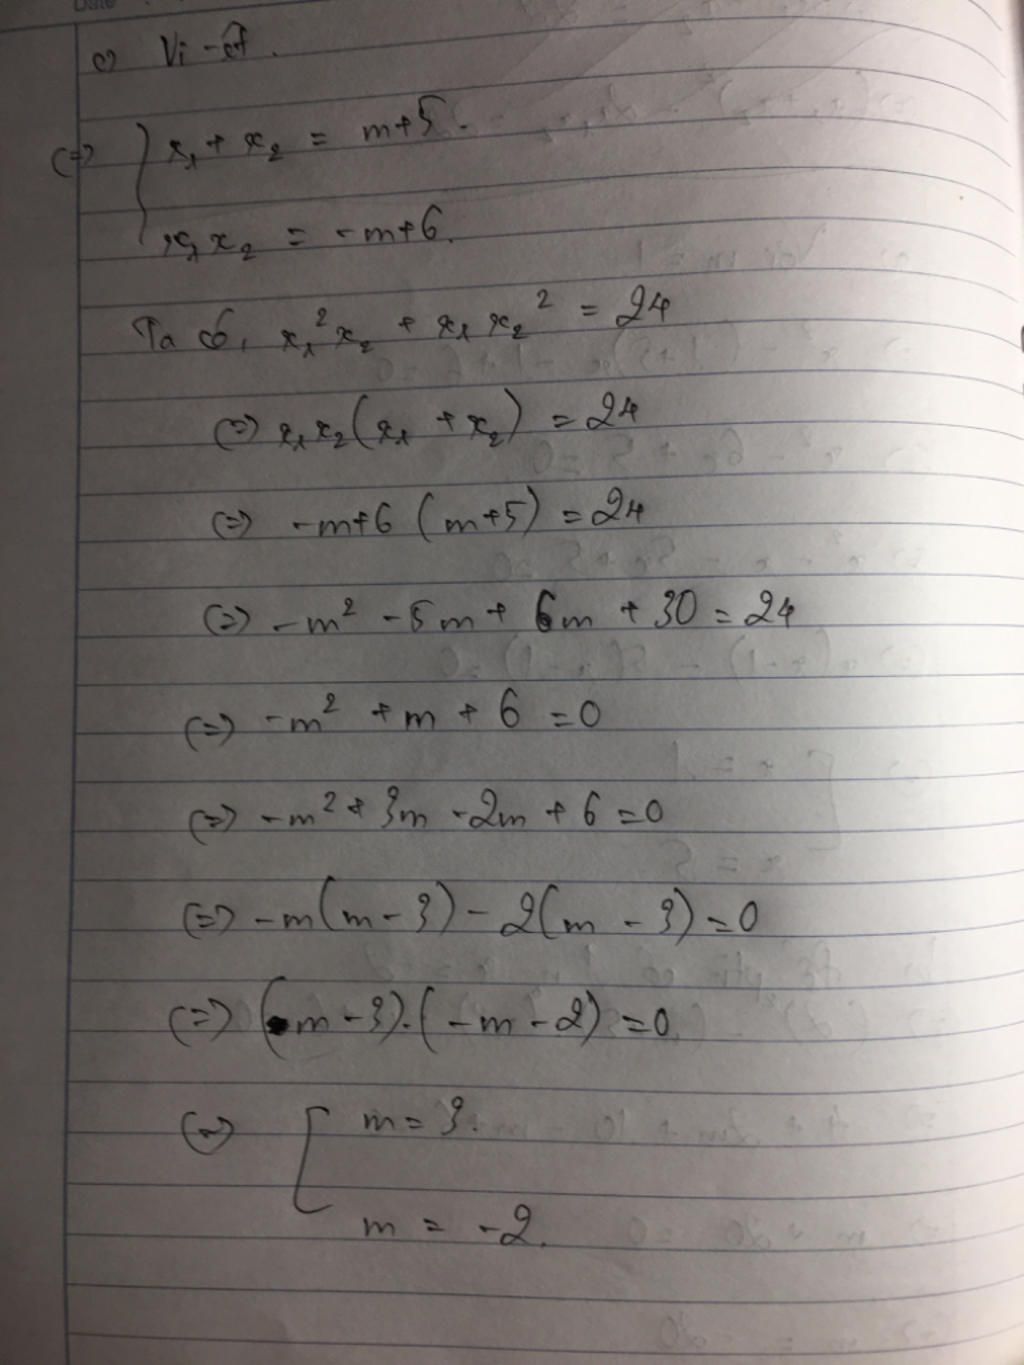 c) Vi-ét.
(=) { x₁ + x₂ = m+5.
x₁x₂ = -m+6.
Ta có, x₁²x₂ + x₁x₂² = 24
(=) x₁x₂(x₁ + x₂) = 24
(=) -m+6 (m+5) = 24
(=) -m² - 5m + 6m + 30 = 24
(=) -m² + m + 6 = 0
(=) -m² + 3m - 2m + 6 = 0
(=) -m(m - 3) - 2(m - 3) = 0
(=) (m - 3).(-m - 2) = 0.
(=) [ m = 3.
m = -2.